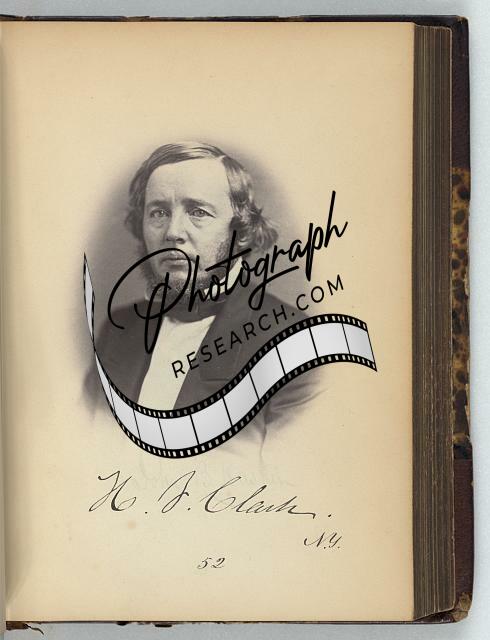 Photograph
RESEARCH.COM
H. F. Clark.
N.Y.
52